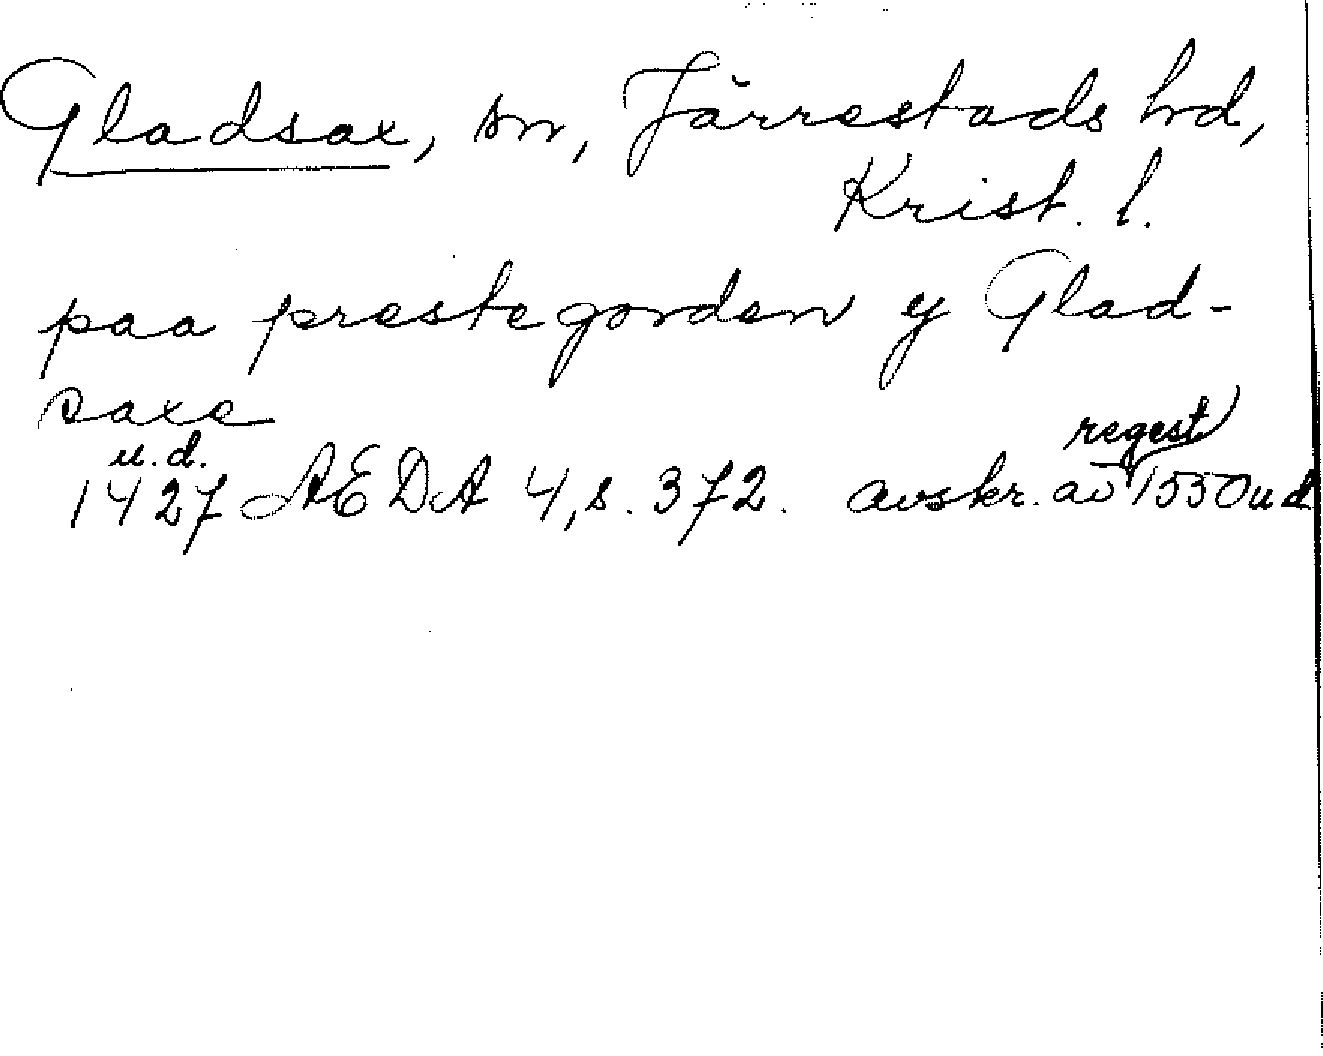 Gladsax, sn, Järrestads hd,
Krist. l.
paa prestegorden y Glad-
saxe
u.d. regest
1427 AEDA 4, s. 372. avskr. av 1550 ud